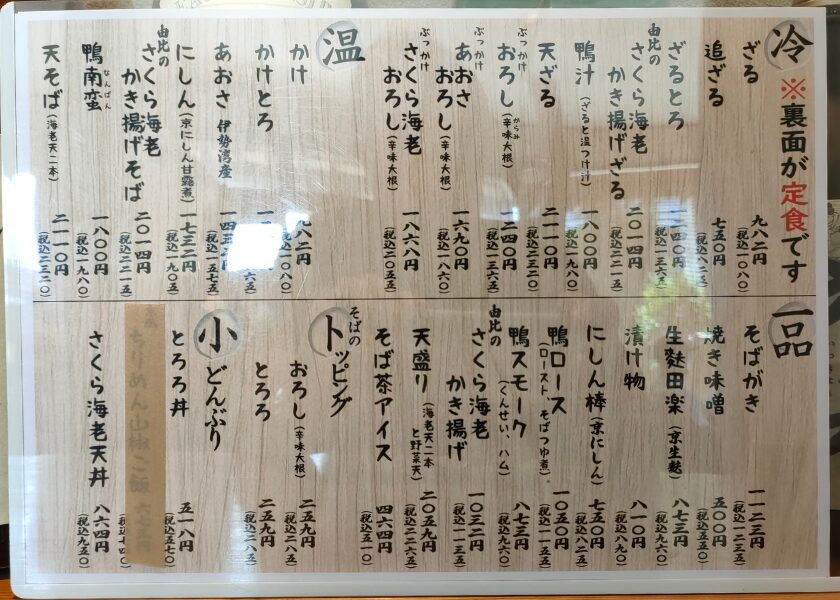 冷
※裏面が定食です
ざる
九八二円
(税込一〇八〇)
追ざる
七五〇円
(税込八二五)
ざるとろ
一二四〇円
(税込一三六五)
由比の
さくら海老
かき揚げざる
二〇一四円
(税込二二一五)
鴨汁(ざると温つけ汁)
一八〇〇円
(税込一九八〇)
天ざる
二一一〇円
(税込二三二〇)
ぶっかけ
おろし(辛味大根)
からみ
一二四〇円
(税込一三六五)
ぶっかけ
あおさ
おろし(辛味大根)
一六九〇円
(税込一八六〇)
ぶっかけ
さくら海老
おろし(辛味大根)
一八六八円
(税込二〇五五)
温
かけ
九八二円
(税込一〇八〇)
かけとろ
あおさ 伊勢湾産
(税込一五七五)
にしん(京にしん甘露煮)
一七三二円
(税込一九〇五)
由比の
さくら海老
かき揚げそば
二〇一四円
(税込二二一五)
鴨南蛮
なんばん
一八〇〇円
(税込一九八〇)
天そば(海老天二本)
二一一〇円
(税込二三二〇)
一品
そばがき
一一二三円
(税込一二三五)
焼き味噌
五〇〇円
(税込五五〇)
生麩田楽(京生麩)
八七三円
(税込九六〇)
漬け物
八一〇円
(税込八九〇)
にしん棒(京にしん)
七五〇円
(税込八二五)
鴨ロース
(ロースト、そばつゆ煮)
一〇五〇円
(税込一一五五)
鴨スモーク
(くんせい、ハム)
八七三円
(税込九六〇)
由比の
さくら海老
かき揚げ
一〇三二円
(税込一一三五)
天盛り(海老天二本
と野菜天)
二〇五九円
(税込二二六五)
そば茶アイス
四六四円
(税込五一〇)
そばの
トッピング
おろし(辛味大根)
二五九円
(税込二八五)
とろろ
二五九円
(税込二八五)
小どんぶり
とろろ丼
五一八円
(税込五七〇)
ちりめん山椒ご飯
さくら海老天丼
八六四円
(税込九五〇)